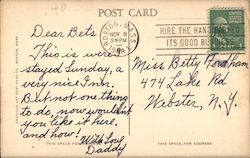 40
POST CARD
BOSTON, MASS.
NOV 8
5 PM
HIRE THE HANDICAPPED
ITS GOOD BUSINESS
Dear Bets
This is were I
stayed Sunday, a
very nice Inn.
But not one thing
to do, now wouldn't
you like it here,
and how!
With Love
Daddy
Miss Betty Fordham
474 Lake Rd
Webster, N.Y.
THIS SPACE FOR
THIS SPACE FOR ADDRESS